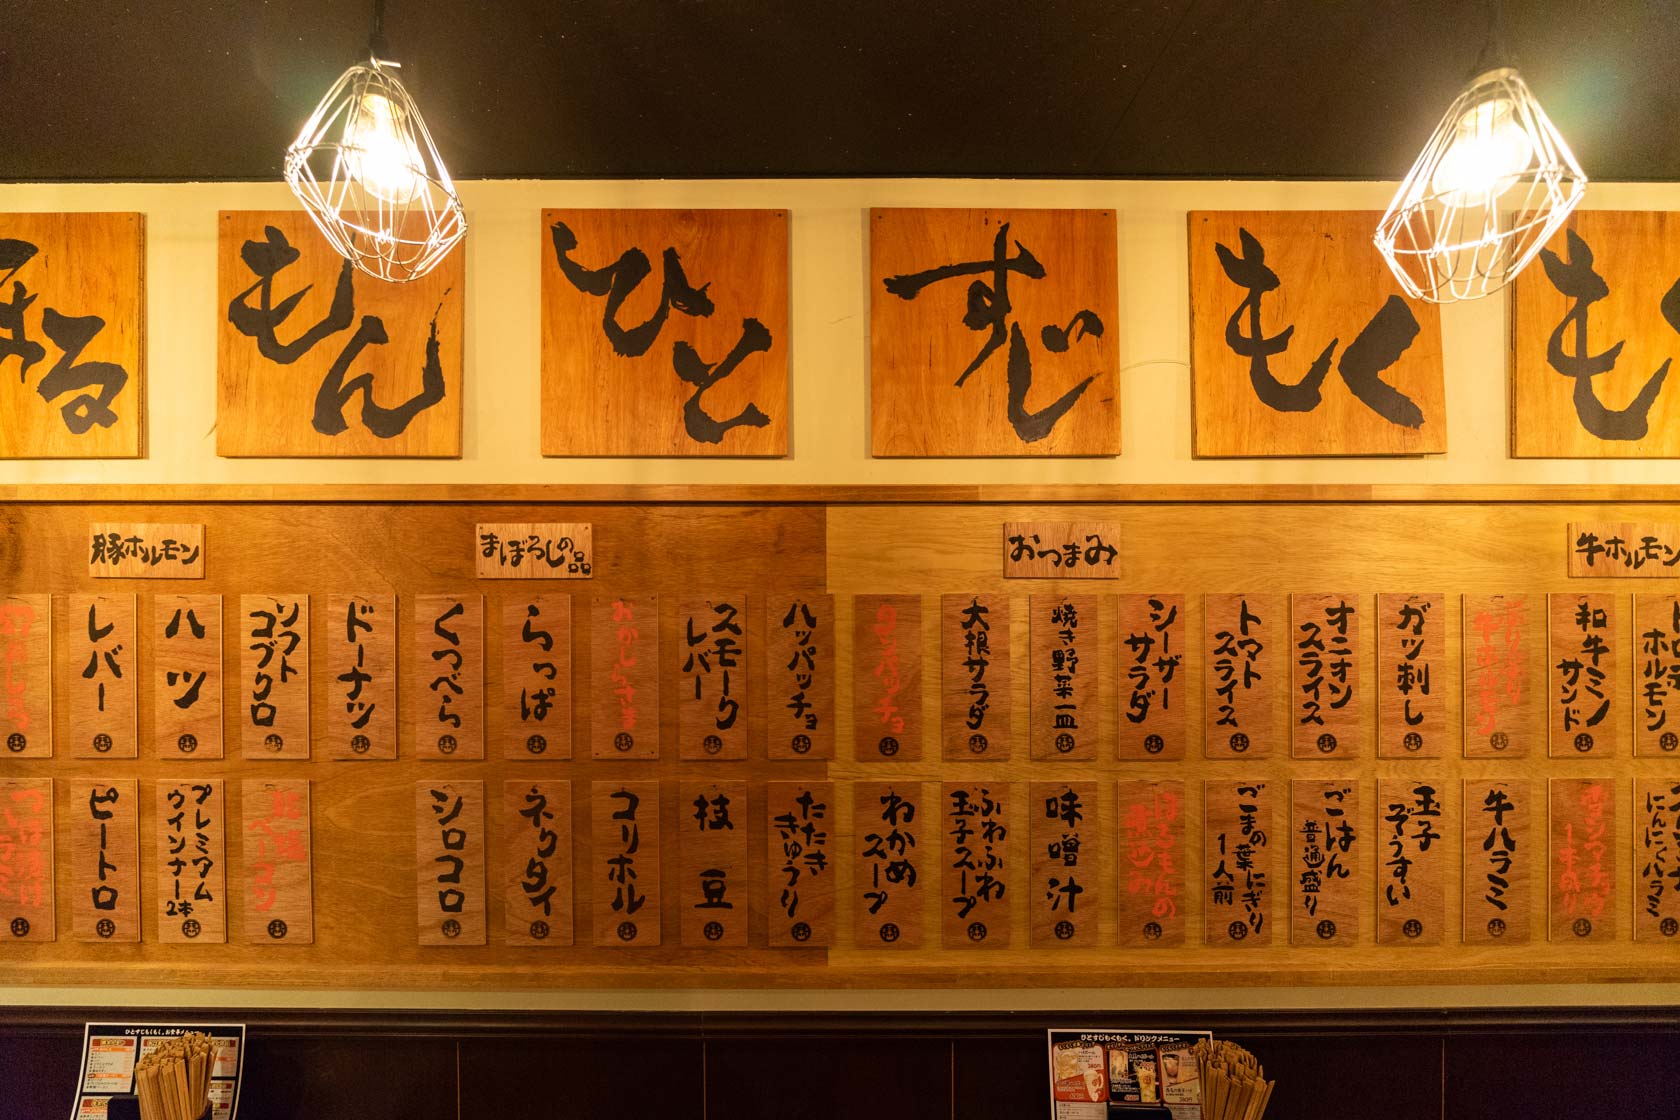 ほるもんひとすじもくもく
豚ホルモン
まぼろしの品
おつまみ
牛ホルモン
レバー
ハツ
ソフト
コブクロ
ドーナツ
くつべら
らっぱ
おかしらさま
スモーク
レバー
ハツパッチョ
大根サラダ
焼き野菜一皿
シーザー
サラダ
トマト
スライス
オニオン
スライス
ガツ刺し
和牛ミノ
サンド
ホルモン
ピートロ
プレミアム
ウインナー2本
シロコロ
ネクタイ
コリホル
枝豆
たたき
きゅうり
わかめ
スープ
ふわふわ
玉子スープ
味噌汁
ほるもんの
煮込み
ごまの葉にぎり
1人前
ごはん
普通盛り
玉子
ぞうすい
牛ハラミ
にんにくハラミ
ひとすじもくもく。お食事メニュー
ひとすじもくもく。ドリンクメニュー